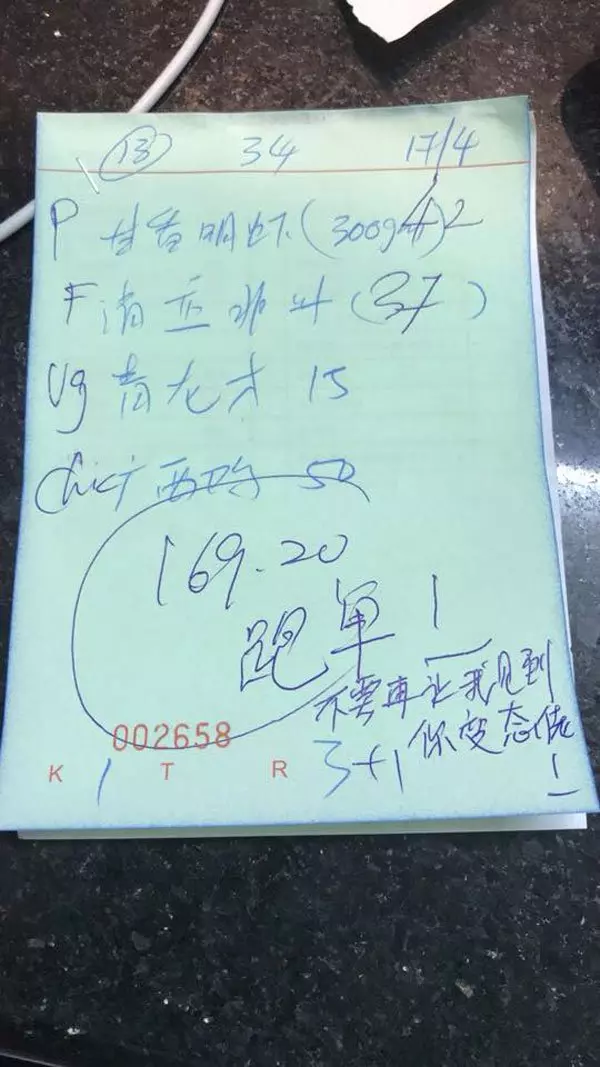 13 34 17/4
P 甘香明虾(300gm) 42
F 清 (37)
Vg 青龙才 15
chic 西 50
169.20
跑单!
不要再让我见到
你变态佬!
002658
3+1
K 1 T R